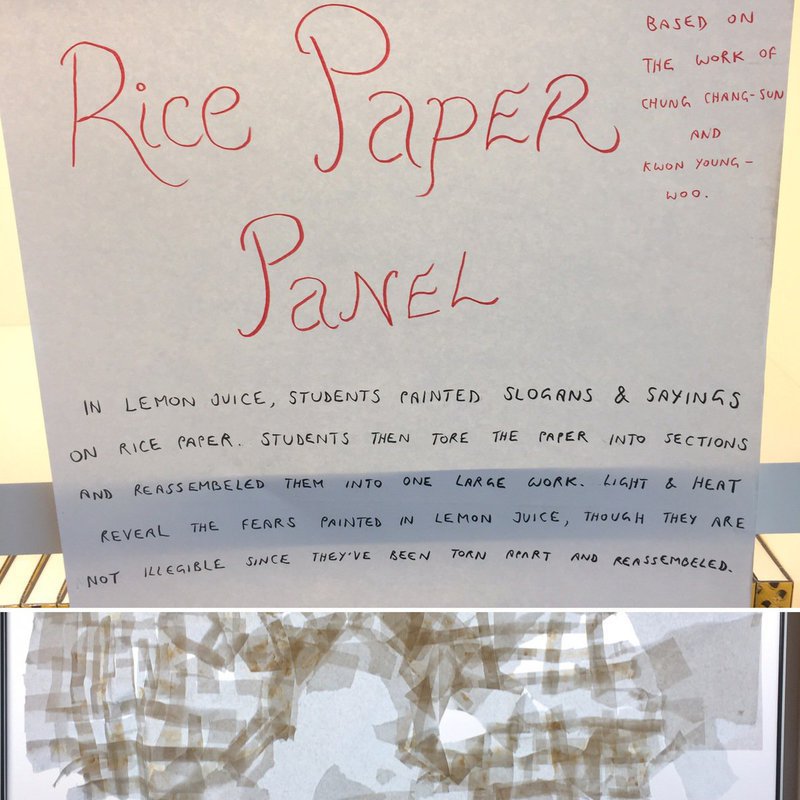 Rice PaPER
PaNEL
BASED ON
THE WORK OF
CHUNG CHANG-SUN
AND
KWON YOUNG-
WOO.
IN LEMON JUICE, STUDENTS PAINTED SLOGANS & SAYINGS
ON RICE PAPER. STUDENTS THEN TORE THE PAPER INTO SECTIONS
AND REASSEMBELED THEM INTO ONE LARGE WORK. LIGHT & HEAT
REVEAL THE FEARS PAINTED IN LEMON JUICE, THOUGH THEY ARE
NOT ILLEGIBLE SINCE THEY'VE BEEN TORN APART AND REASSEMBELED.